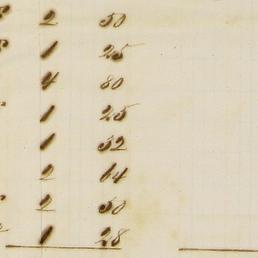 2 50
1 25
4 80
1 25
1 32
2 64
2 50
1 28